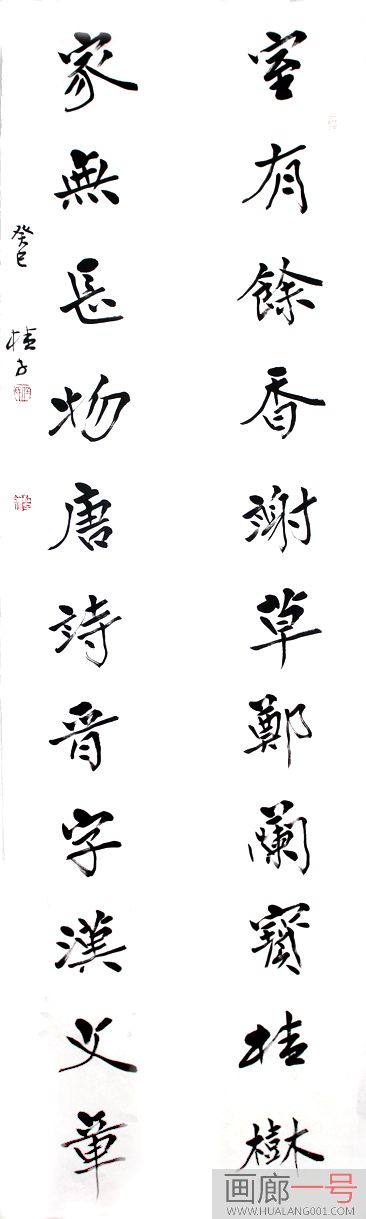 室有餘香謝草鄭蘭竇桂樹
家無長物唐詩晉字漢文章
癸巳 桂子
画廊一号
WWW.HUALANG001.COM